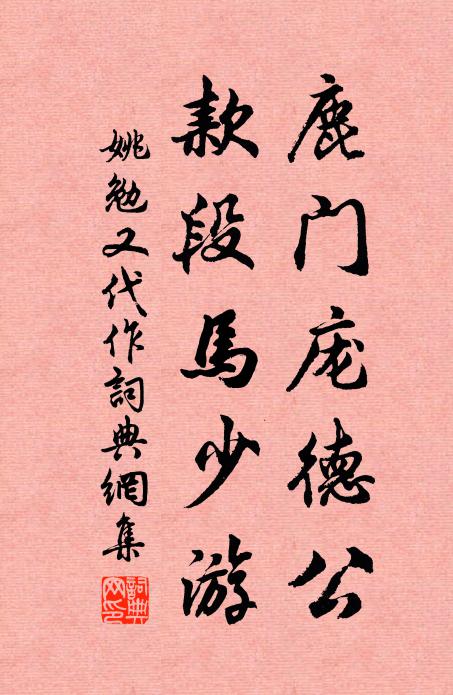 鹿门庞德公
款段馬少游
姚勉又代作詞典網集
詞典網印